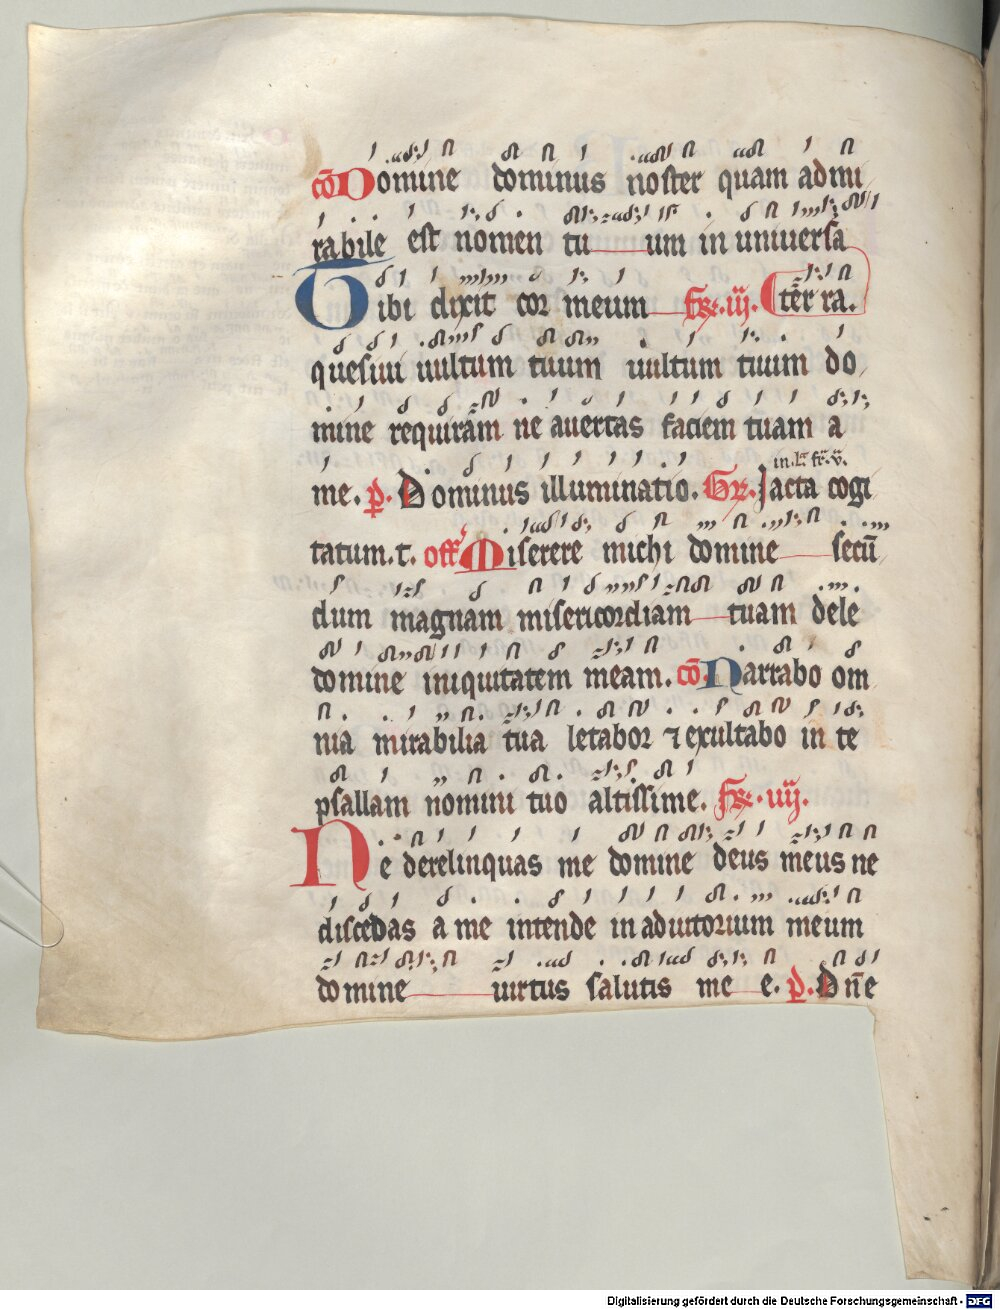 cō Domine dominus noster quam admi
rabile est nomen tu um in uniuersa
Tibi dixit cor meum fr. iij. ter ra.
quesiui uultum tuum uultum tuum do
mine requiram ne auertas faciem tuam a
in .L. fr. v.
me. p. Dominus illuminatio. Gr. Jacta cogi
tatum. t. off Miserere michi domine secū
dum magnam misericordiam tuam dele
domine iniquitatem meam. cō. Narrabo om
nia mirabilia tua letabor ⁊ exultabo in te
psallam nomini tuo altissime. fr. iiij.
Ne derelinquas me domine deus meus ne
discedas a me intende in adiutorium meum
domine uirtus salutis me e. p. Dn̄e
Digitalisierung gefördert durch die Deutsche Forschungsgemeinschaft - DFG